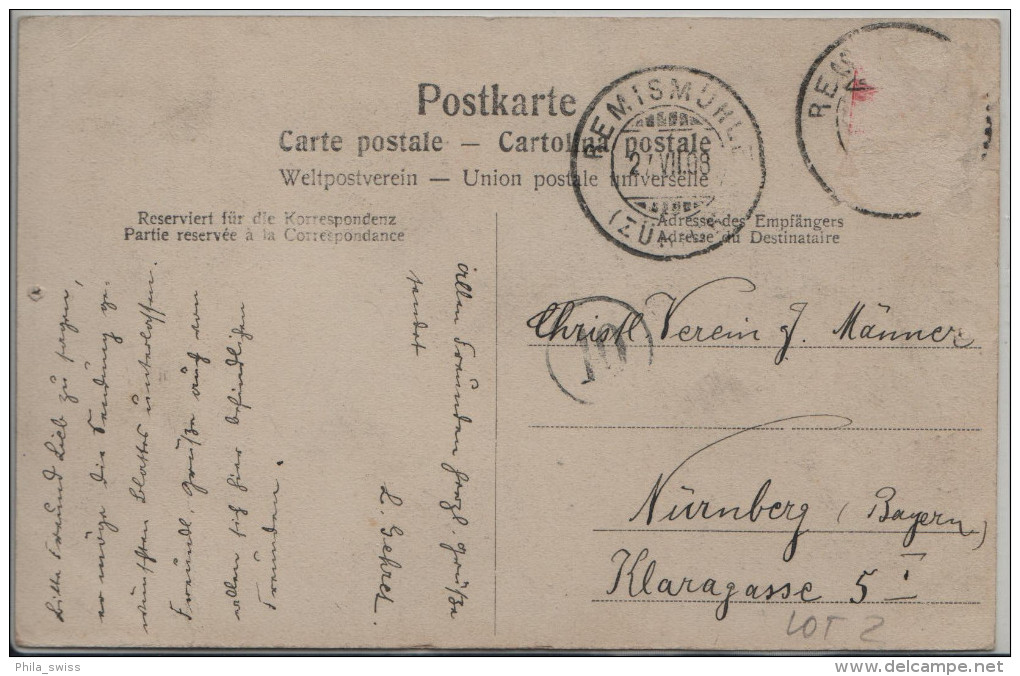 Postkarte
Carte postale — Cartolina postale
Weltpostverein — Union postale universelle
Reserviert für die Korrespondenz
Partie reservée à la Correspondance
Adresse des Empfängers
Adresse du Destinataire
REMISMÜHLE
27.VII.08
(ZÜRICH)
REM
Christl. Verein j. Männer
Nürnberg (Bayern)
Klaragasse 5 I
10
Allen Freunden herzl. Grüße
sendet
L. Gehret.
Bitte Freund Lieb zu sagen,
er möge die Sendung ge-
wünschten Blattes unterlassen.
Freundl. Grüße auch von
allen sich hier befindlichen
Freunden.
LOT 2
Phila_swiss
www.delcampe.net